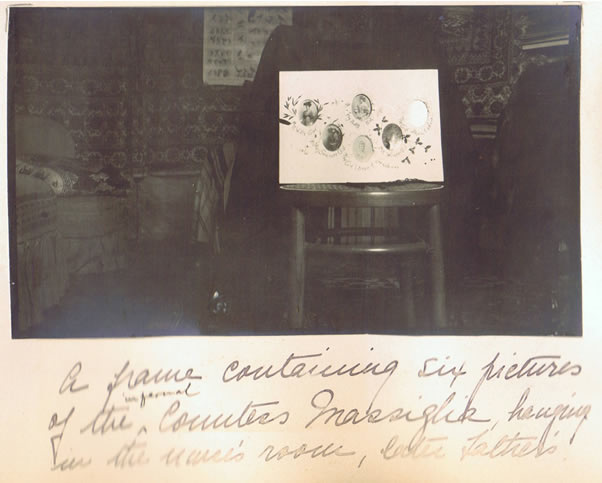 A frame containing six pictures
of the infernal Countess Massiglia, hanging
in the nurse's room, later father's.